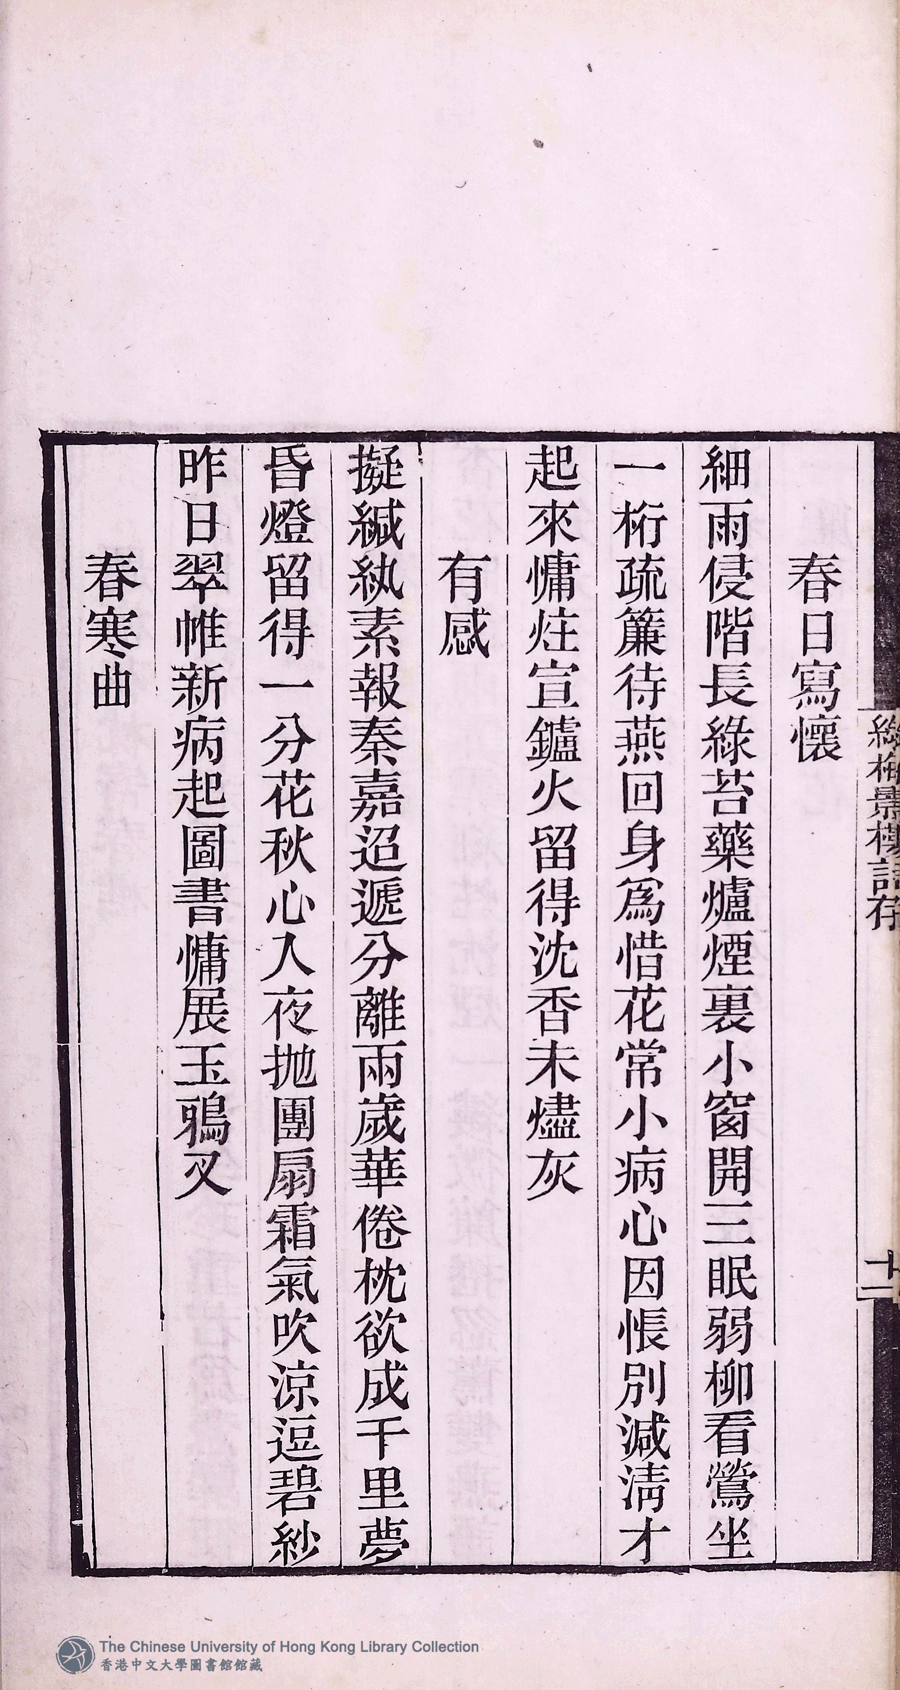 春日寫懷
細雨侵階長綠苔藥爐煙裏小窗開三眠弱柳看鶯坐
一桁疏簾待燕回身爲惜花常小病心因悵別減淸才
起來慵炷宣鑪火留得沈香未燼灰
有感
擬緘紈素報秦嘉迢遞分離兩歲華倦枕欲成千里夢
昏燈留得一分花秋心入夜拋團扇霜氣吹涼逗碧紗
昨日翠帷新病起圖書慵展玉鴉叉
春寒曲
十二
The Chinese University of Hong Kong Library Collection
香港中文大學圖書館館藏